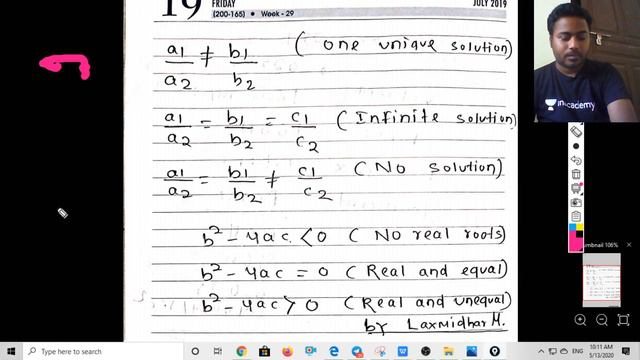 19 FRIDAY JULY 2019
(200-165) • Week - 29
a1/a2 ≠ b1/b2 (one unique solution)
a1/a2 = b1/b2 = c1/c2 (Infinite solution)
a1/a2 = b1/b2 ≠ c1/c2 (No solution)
b² - 4ac < 0 (No real roots)
b² - 4ac = 0 (Real and equal)
b² - 4ac > 0 (Real and unequal)
by Laxmidhar M.
academy
umbnail 106%
Type here to search
ENG
10:11 AM
5/13/2020